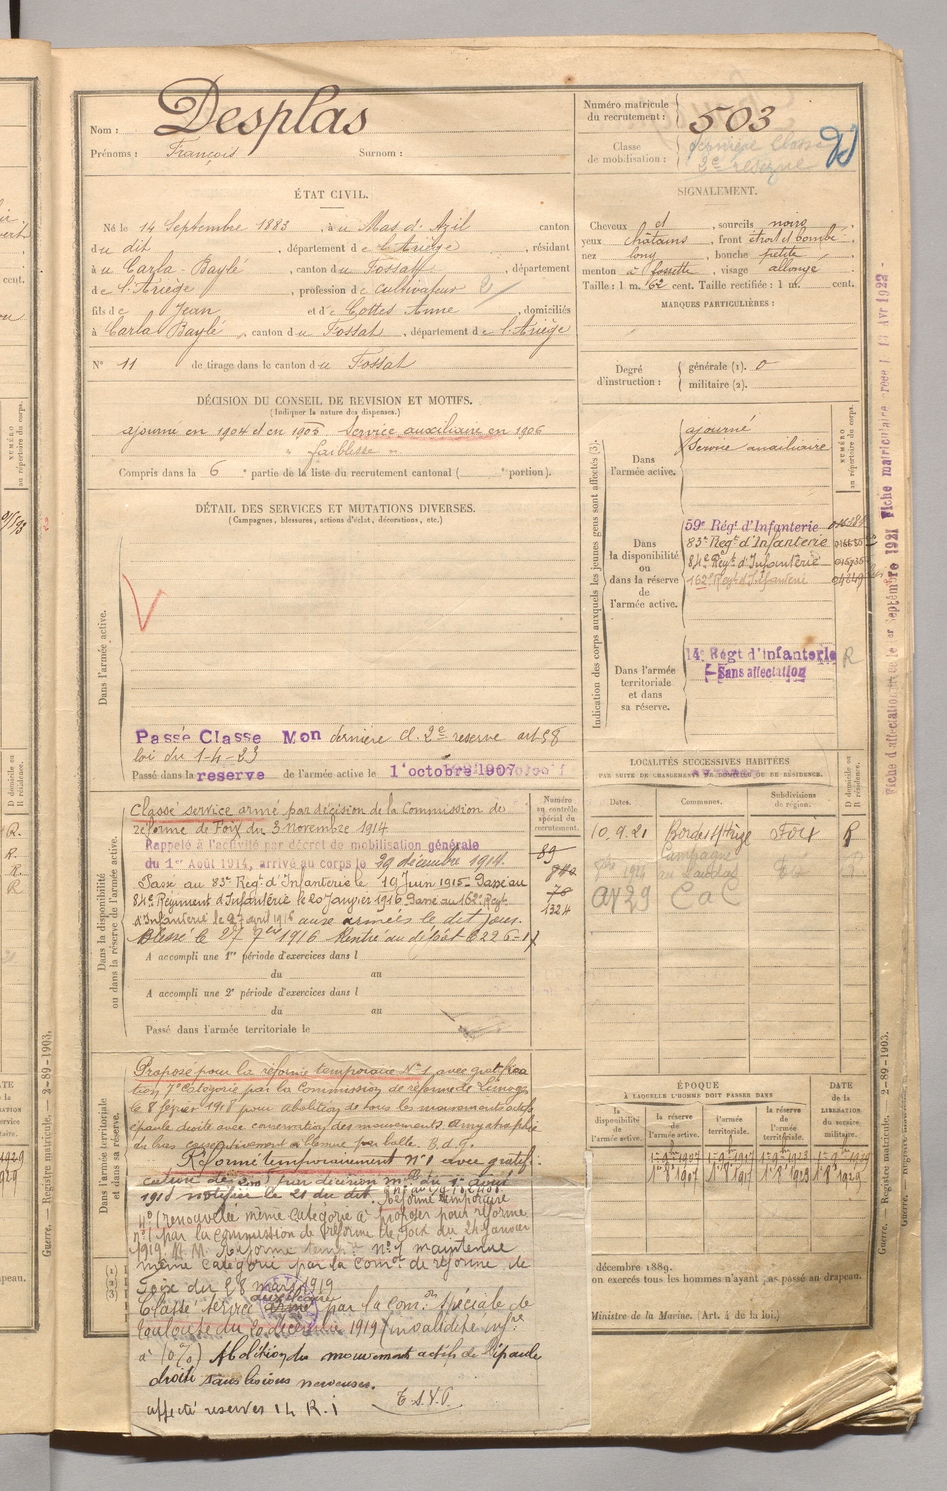 Nom : Desplas
Prénoms : François Surnom :
Numéro matricule du recrutement : 503
Classe de mobilisation : dernière Classe
2e réserve
ÉTAT CIVIL.
Né le 14 Septembre 1883, à u Mas d'Azil canton
du dit, département de l'Ariège, résidant
à u Carla-Bayle, canton du Fossat, département
de l'Ariège, profession de cultivateur
fils de Jean et de Cottes Anne, domiciliés
à Carla Bayle, canton du Fossat, département de l'Ariège
N° 11 de tirage dans le canton du Fossat
SIGNALEMENT.
Cheveux et, sourcils noirs
yeux châtains, front étroit et bombé
nez long, bouche petite
menton à fossette, visage allongé
Taille : 1 m. 62 cent. Taille rectifiée : 1 m. cent.
MARQUES PARTICULIÈRES :
Degré d'instruction : générale (1). 0
militaire (2).
DÉCISION DU CONSEIL DE REVISION ET MOTIFS.
(Indiquer la nature des dispenses.)
ajourné en 1904 et en 1905 Service auxiliaire en 1906
" faiblesse "
Compris dans la 6e partie de la liste du recrutement cantonal ( e portion).
DÉTAIL DES SERVICES ET MUTATIONS DIVERSES.
(Campagnes, blessures, actions d'éclat, décorations, etc.)
Dans l'armée active.
Passé Classe Mon dernière cl. 2e réserve art 58
loi du 1-4-23
Passé dans la reserve de l'armée active le 1er octobre 1907
Indication des corps auxquels les jeunes gens sont affectés (3).
NUMÉRO au répertoire du corps.
Dans l'armée active.
ajourné
Service auxiliaire
Dans la disponibilité ou dans la réserve de l'armée active.
59e Régt d'Infanterie
83e Regt d'Infanterie
84e Regt d'Infanterie
162e Regt d'Infanterie
Dans l'armée territoriale et dans sa réserve.
14e Régt d'Infanterie R
Sans affectation
Fiche d'affectation du 1er Septembre 1921 Fiche matriculaire
LOCALITÉS SUCCESSIVES HABITÉES
PAR SUITE DE CHANGEMENTS DE DOMICILE OU DE RÉSIDENCE.
Dates. Communes. Subdivisions de région. D domicile ou R résidence.
10.9.21 Bordes s/ Arize Foix R
Dans la disponibilité ou dans la réserve de l'armée active.
Numéro au contrôle spécial du recrutement.
Classé service armé par décision de la Commission de
réforme de Foix du 3 novembre 1914
Rappelé à l'activité par décret de mobilisation générale
du 1er Août 1914, arrivé au corps le 29 décembre 1914.
Passé au 83e Régt d'Infanterie le 19 Juin 1915. Passé au
84e Régiment d'Infanterie le 20 Janvier 1916. Passé au 162e Regt
d'Infanterie le 27 avril 1916 aux armées le dit jour.
Blessé le 27 7bre 1916 Rentré au dépôt le 22 6-17
1324
A accompli une 1re période d'exercices dans l
du au
A accompli une 2e période d'exercices dans l
du au
Passé dans l'armée territoriale le
Dans l'armée territoriale et dans sa réserve.
Proposé pour la réforme temporaire N° 1 avec gratifica
tion 7e Catégorie par la Commission de réforme de Limoges
le 8 février 1918 pour abolition de tous les mouvements actifs
épaule droite avec conservation des mouvements. Amyotrophie
du bras consécutivement à blessure par balle. B. d. G.
Réformé temporairement n° 1 avec gratifi
cation de par décision mlle du 1er août
1918 notifiée le 21 du dit. Réforme temporaire
n° 1 renouvelée même catégorie à proposer pour réforme
n° 1 par la Commission de Réforme de Foix du 24 Janvier
1919. Réforme temp. n° 1 maintenue
même catégorie par la Comon de réforme de
Foix du 28 mars 1919
auxiliaire
Classé service armé par la Comon spéciale de
Toulouse du 20 décembre 1919 (invalidité infre
à 10%) Abolition du mouvement actif de l'épaule
droite sans lésions nerveuses.
affecté reserves 14 R.I
T.S.V.P.
ÉPOQUE
À LAQUELLE L'HOMME DOIT PASSER DANS
la disponibilité de l'armée active. la réserve de l'armée active. l'armée territoriale. la réserve de l'armée territoriale.
DATE de la LIBÉRATION du service militaire.
décembre 1889.
on exercés tous les hommes n'ayant pas passé au drapeau.
Ministre de la Marine. (Art. 4 de la loi.)
Guerre. — Registre matricule. 2-89-1903.